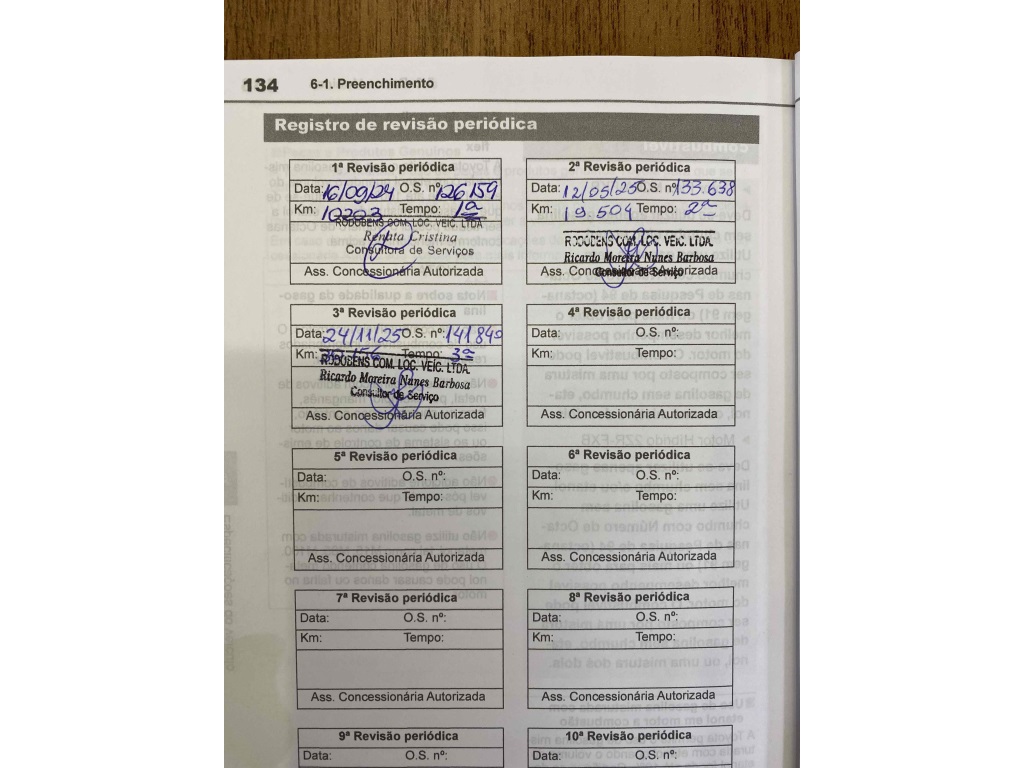 134 6-1. Preenchimento
Registro de revisão periódica
1ª Revisão periódica
Data: 16/09/24 O.S. nº: 126159
Km: 10203 Tempo: 1ª
RODOBENS COM. LOC. VEIC. LTDA
Renata Cristina
Consultora de Serviços
Ass. Concessionária Autorizada
2ª Revisão periódica
Data: 12/05/25 O.S. nº: 133.638
Km: 19.504 Tempo: 2ª
RODOBENS COM. LOC. VEIC. LTDA.
Ricardo Moreira Nunes Barbosa
Consultor de Serviço
Ass. Concessionária Autorizada
3ª Revisão periódica
Data: 24/11/25 O.S. nº: 141849
Km: Tempo: 3ª
RODOBENS COM. LOC. VEIC. LTDA.
Ricardo Moreira Nunes Barbosa
Consultor de Serviço
Ass. Concessionária Autorizada
4ª Revisão periódica
Data: O.S. nº:
Km: Tempo:
Ass. Concessionária Autorizada
5ª Revisão periódica
Data: O.S. nº:
Km: Tempo:
Ass. Concessionária Autorizada
6ª Revisão periódica
Data: O.S. nº:
Km: Tempo:
Ass. Concessionária Autorizada
7ª Revisão periódica
Data: O.S. nº:
Km: Tempo:
Ass. Concessionária Autorizada
8ª Revisão periódica
Data: O.S. nº:
Km: Tempo:
Ass. Concessionária Autorizada
9ª Revisão periódica
Data: O.S. nº:
10ª Revisão periódica
Data: O.S. nº: